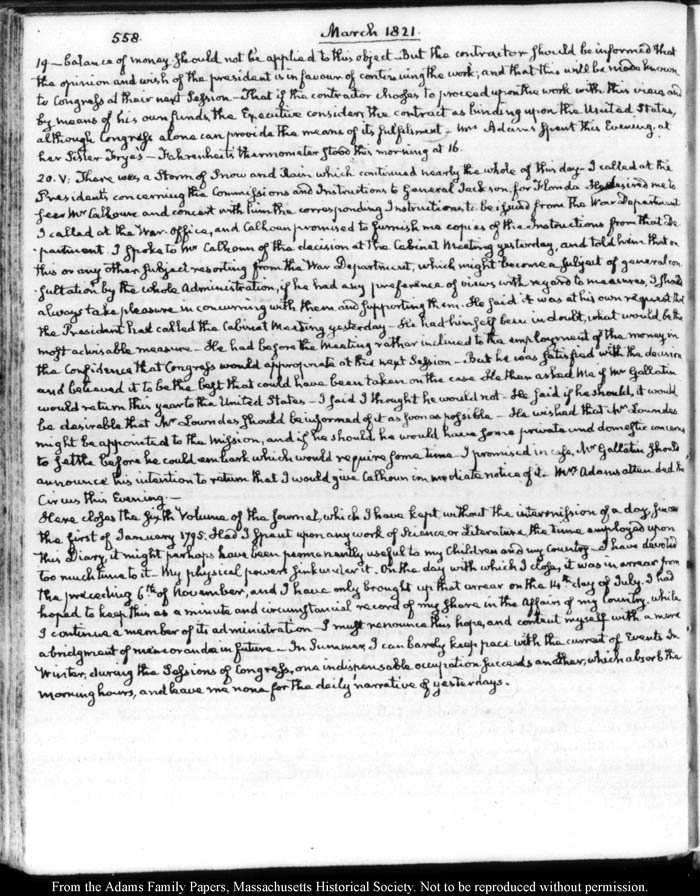 558.
March 1821.
19 — balance of money should not be applied to this object. But the contractor should be informed that
the opinion and wish of the president is in favour of continuing the work; and that this will be made known
to Congress at their next Session — That if the contractor chooses to proceed upon the work with this view, and
by means of his own funds, the Executive consider, the contract as binding upon the United States,
although Congress alone can provide the means of its fulfilment. Mrs Adams spent this Evening at
her Sister Frye's — Fahrenheit's thermometer stood this morning at 16.
20. V: There was a Storm of Snow and Rain which continued nearly the whole of this day — I called at the
Presidents concerning the Commissions and Instructions to General Jackson, for Florida. He desired me to
see Mr Calhoun and concert with him the corresponding Instructions to be issued from the War Department
I called at the War office, and Calhoun promised to furnish me copies of the Instructions from that De-
-partment. I spoke to Mr Calhoun of the decision at the Cabinet Meeting yesterday, and told him that on
this or any other subject resorting from the War Department, which might become a subject of general con-
-sultation by the whole Administration, if he had any preference of views with regard to measures, I should
always take pleasure in concurring with them and supporting them. He said it was at his own request that
the President had called the Cabinet Meeting yesterday — He had himself been in doubt, what would be the
most advisable measure — He had before the Meeting rather inclined to the employment of the money, in
the Confidence that Congress would appropriate at the next Session — But he was satisfied with the decision
and believed it to be the best that could have been taken on the case. He then asked me if Mr Gallatin
would return this year to the United States — I said I thought he would not — He said if he should, it would
be desirable that Mr Lowndes should be informed of it as soon as possible — He wished that Mr Lowndes
might be appointed to the Mission, and if he should he would have some private and domestic concerns
to settle before he could embark which would require some time — I promised in case, Mr Gallatin should
announce his intention to return that I would give Calhoun immediate notice of it. Mrs Adams attended the
Circus this Evening —
Here closes the sixth Volume of the Journal, which I have kept without the intermission of a day, since
the first of January 1795. Had I spent upon any work of Science or Literature the time employed upon
this Diary, it might perhaps have been permanently useful to my Children and my Country — I have devoted
too much time to it — My physical powers sink under it. On the day with which I close, it was in arrear from
the preceding 6th of November, and I have only brought up that arrear on the 14th day of July. I had
hoped to keep this as a minute and circumstancial record of my share in the Affairs of my Country, while
I continue a member of its administration — I must renounce this hope, and content myself with a mere
abridgment of memoranda in future — In Summer, I can barely keep pace with the current of Events. In
Winter, during the Sessions of Congress, one indispensable occupation succeeds another, which absorb the
morning hours, and leave me none for the daily narrative of yesterdays.
From the Adams Family Papers, Massachusetts Historical Society. Not to be reproduced without permission.